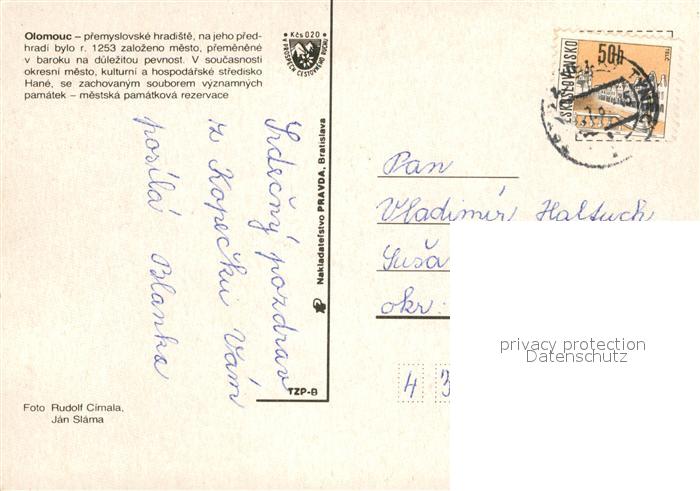 Olomouc – přemyslovské hradiště, na jeho před-
hradí bylo r. 1253 založeno město, přeměněné
v baroku na důležitou pevnost. V současnosti
okresní město, kulturní a hospodářské středisko
Hané, se zachovaným souborem významných
památek – městská památková rezervace
Kčs 020
V PROSPĚCH CESTOVNÉHO RUCHU
Srdečný pozdrav
z Kopečku Vám
posílá Blanka
Nakladateľstvo PRAVDA, Bratislava
TZP-B
Foto Rudolf Cimala,
Ján Sláma
ČESKOSLOVENSKO
50h
TELČ
Pan
Vladimír Haltuch
Suša
okr:
4 3
privacy protection
Datenschutz